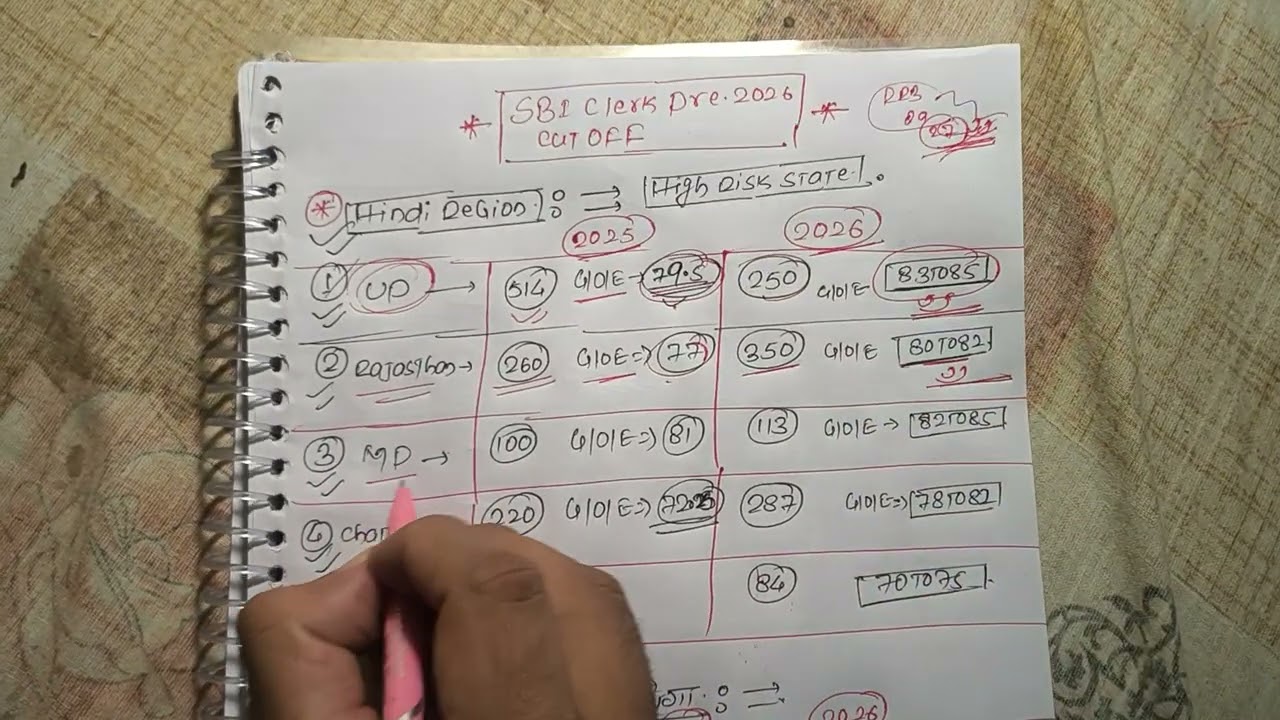 * SBI Clerk Pre. 2026 *
CUT OFF
RRB
09
87
* Hindi ReGion. : ⇒ High Risk State.
2025 2026
① UP → 514 G/O/E → 79.5 250 G/O/E 83TO85
② Rajasthan → 260 G/O/E ⇒ 77 350 G/O/E 80TO82
③ MP → 100 G/O/E ⇒ 81 113 G/O/E → 82TO85
④ 220 G/O/E ⇒ 287 G/O/E ⇒ 78TO82
84 70TO75
: ⇒
2026